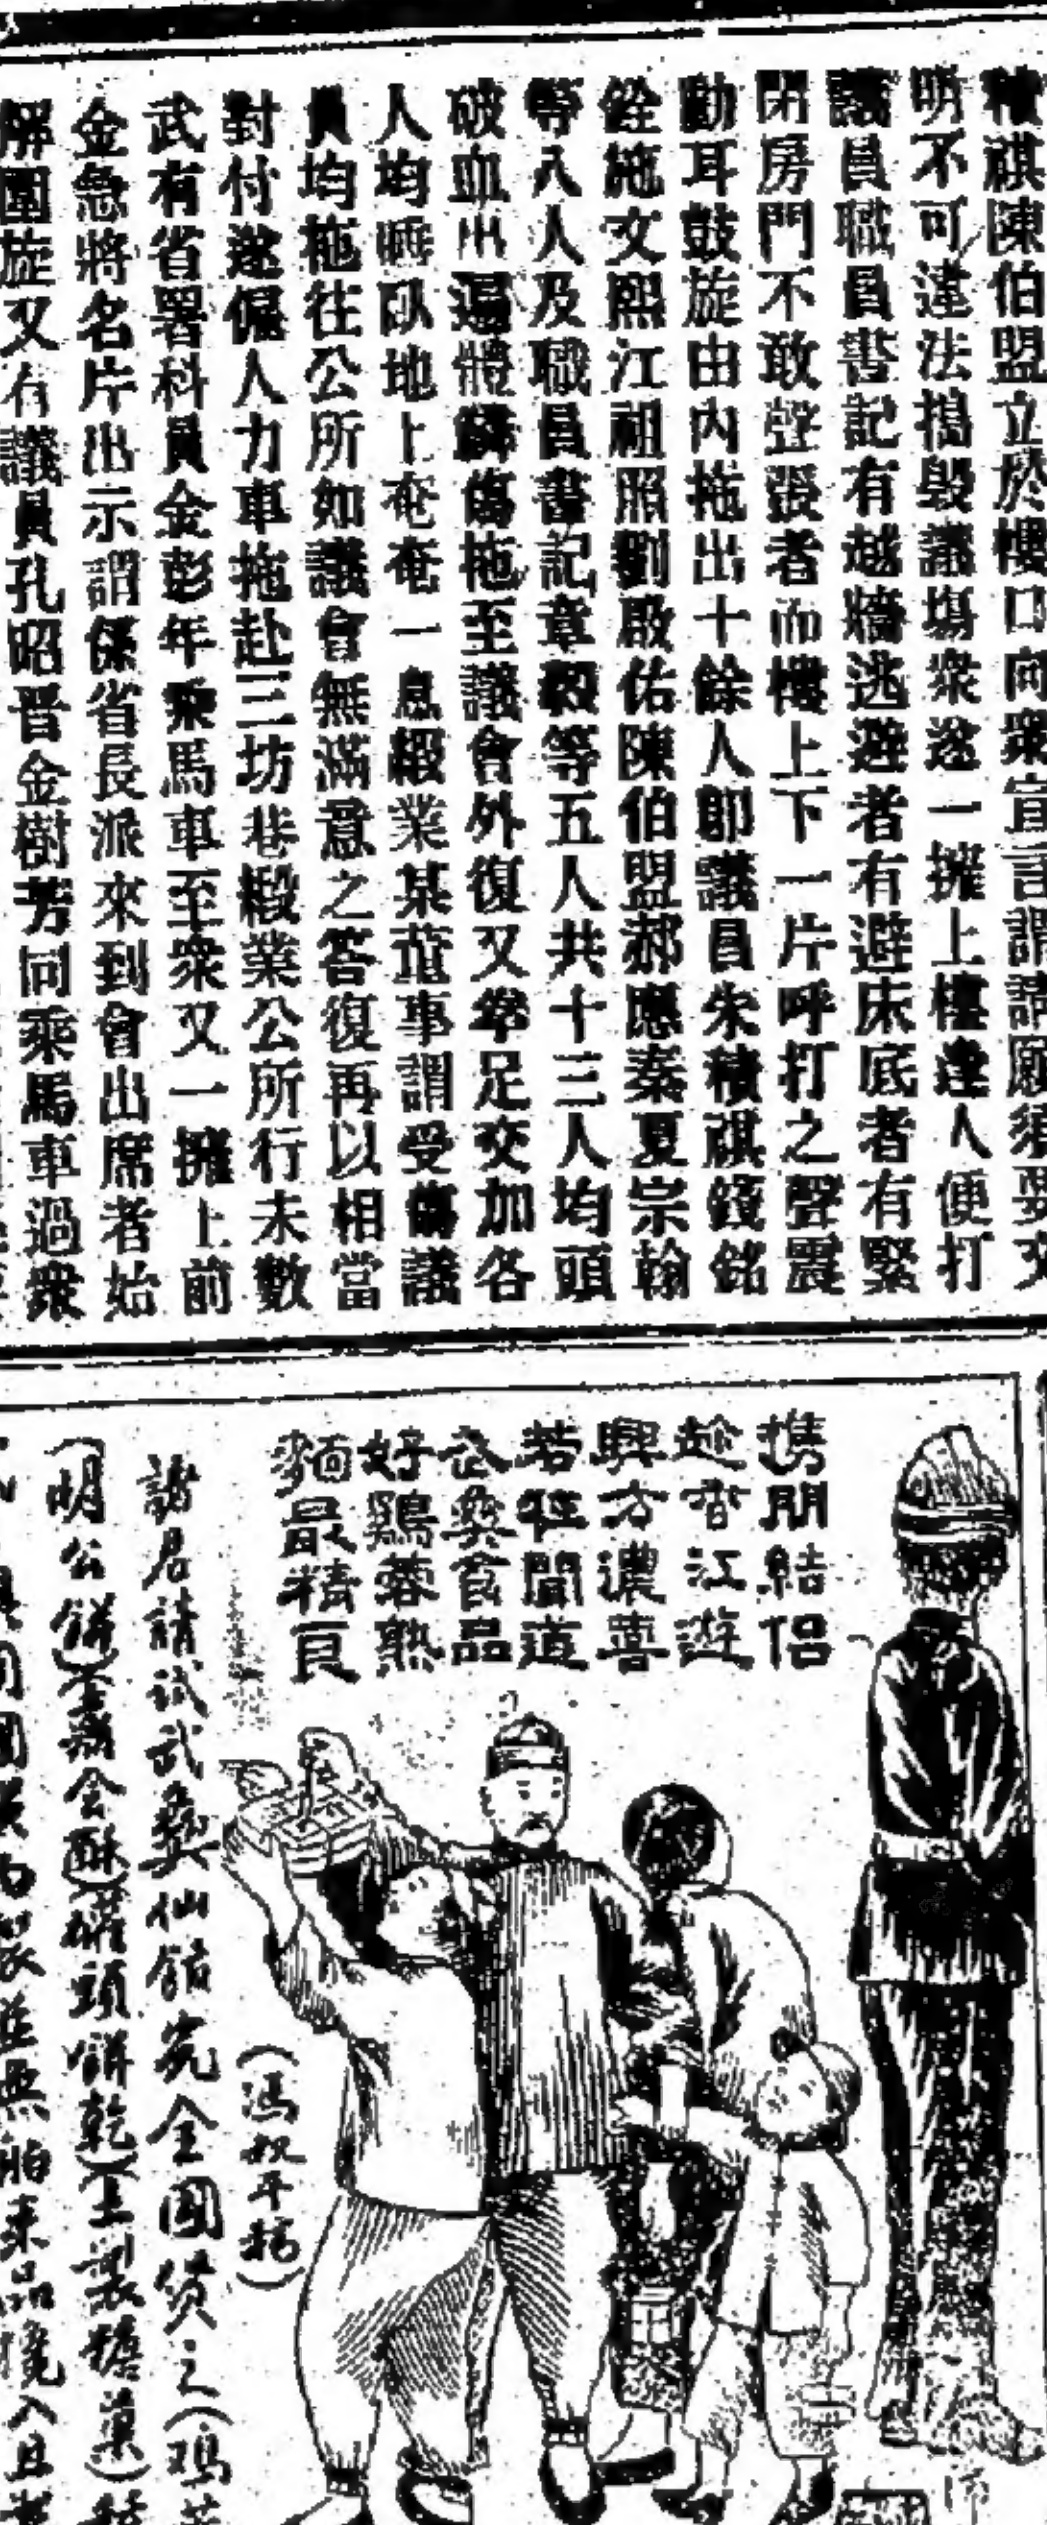 積祺陳伯盟立於樓口向衆宣言謂請願須要文
明不可違法搗毀議塲衆遂一擁上樓逢人便打
議員職員書記有越墻逃避者有避床底者有緊
閉房門不敢聲張者而樓上下一片呼打之聲震
動耳鼓旋由內拖出十餘人卽議員朱積祺錢銘
銓施文熙江祖照劉啟佑陳伯盟郝應秦夏宗翰
等八人及職員書記章穀等五人共十三人均頭
破血出遍體鱗傷拖至議會外復又拳足交加各
人均睡臥地上奄奄一息緞業某董事謂受傷議
員均拖往公所如議會無滿意之答復再以相當
對付遂僱人力車拖赴三坊巷緞業公所行未數
武有省署科員金彭年乘馬車至衆又一擁上前
金急將名片出示謂係省長派來到會出席者始
解圍旋又有議員孔昭晋金樹芳同乘馬車過衆
携朋結侶
趁香江遊
興方濃喜
若狂聞道
武彝食品
好鷄蓉熟
麵最精良
(馮叔平稿)
諸君請試武彝仙舘完全國貨之(鷄蓉
明公餅)(金酥)罐頭餅乾)(上製糖菓)